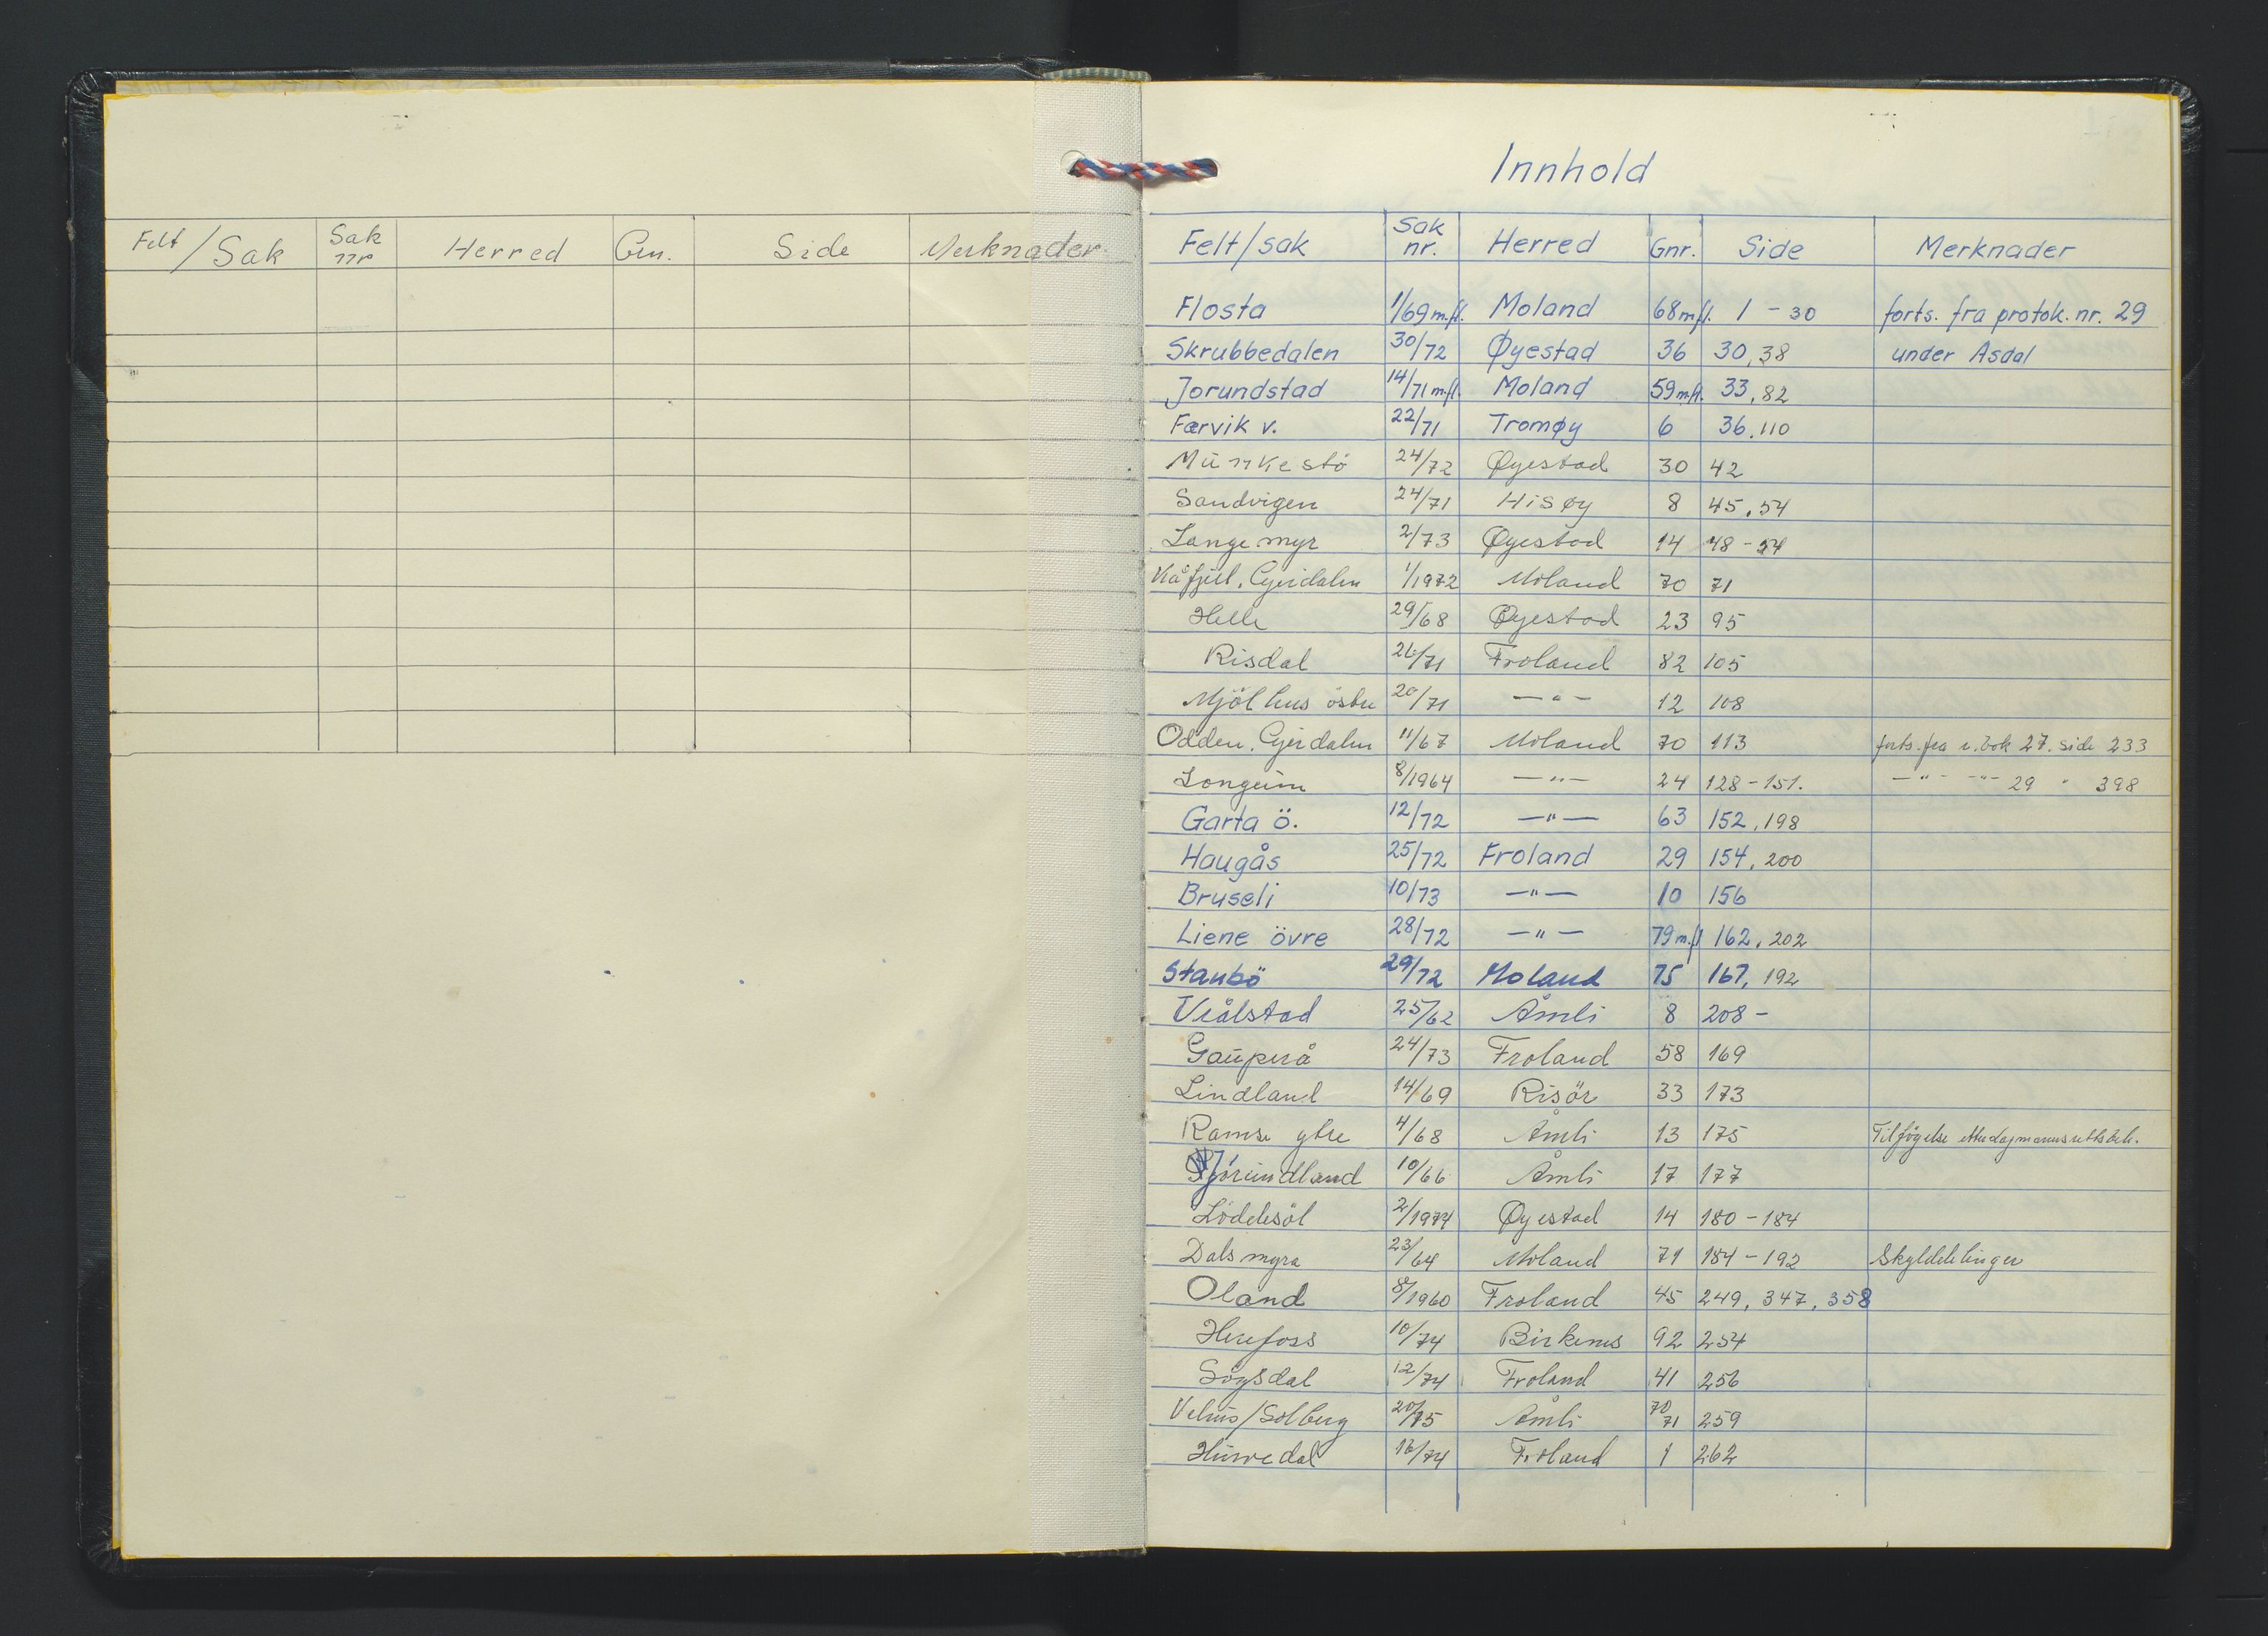 Felt/Sak Sak nr Herred Gnr. Side Merknader
Innhold
Felt/sak Sak nr. Herred Gnr. Side Merknader
Flosta 1/69 m.fl. Moland 68 m.fl. 1 - 30 forts. fra protok. nr. 29
Skrubbedalen 30/72 Øyestad 36 30, 38 under Asdal
Jorundstad 14/71 m.fl. Moland 59 m.fl. 33, 82
Færvik v. 22/71 Tromøy 6 36, 110
Munkestö 24/72 Øyestad 30 42
Sandvigen 24/71 Hisøy 8 45, 54
Langemyr 2/73 Øyestad 14 48 - 54
Kåfjell, Gjeidalen 1/1972 Moland 70 71
Helle 29/68 Øyestad 23 95
Risdal 26/71 Froland 82 105
Mjölhus östre 20/71 — " — 12 108
Odden, Gjeidalen 11/67 Moland 70 113 forts. fra r.bok 27. side 233
Longum 8/1964 — " — 24 128 - 151. — " — — " — 29 " 398
Garta ö. 12/72 — " — 63 152, 198
Haugås 25/72 Froland 29 154, 200
Bruseli 10/73 — " — 10 156
Liene övre 28/72 — " — 79 m.fl 162, 202
Staubö 29/72 Moland 75 167, 192
Vrålstad 25/62 Åmli 8 208 -
Gauperå 24/73 Froland 58 169
Lindland 14/69 Risör 33 173
Ramse ytre 4/68 Åmli 13 175 Tilföyelse etter lagmannsrettsbeh.
Jörundland 10/66 Åmli 17 177
Löddesöl 2/1974 Øyestad 14 180 - 184
Dalsmyra 23/64 Moland 71 184 - 192 Skylddelinger
Oland 8/1960 Froland 45 249, 347, 358
Herefoss 10/74 Birkenes 92 254
Sögsdal 12/74 Froland 41 256
Vehus/Solberg 20/75 Åmli 70 71 259
Hurvedal 16/74 Froland 1 262